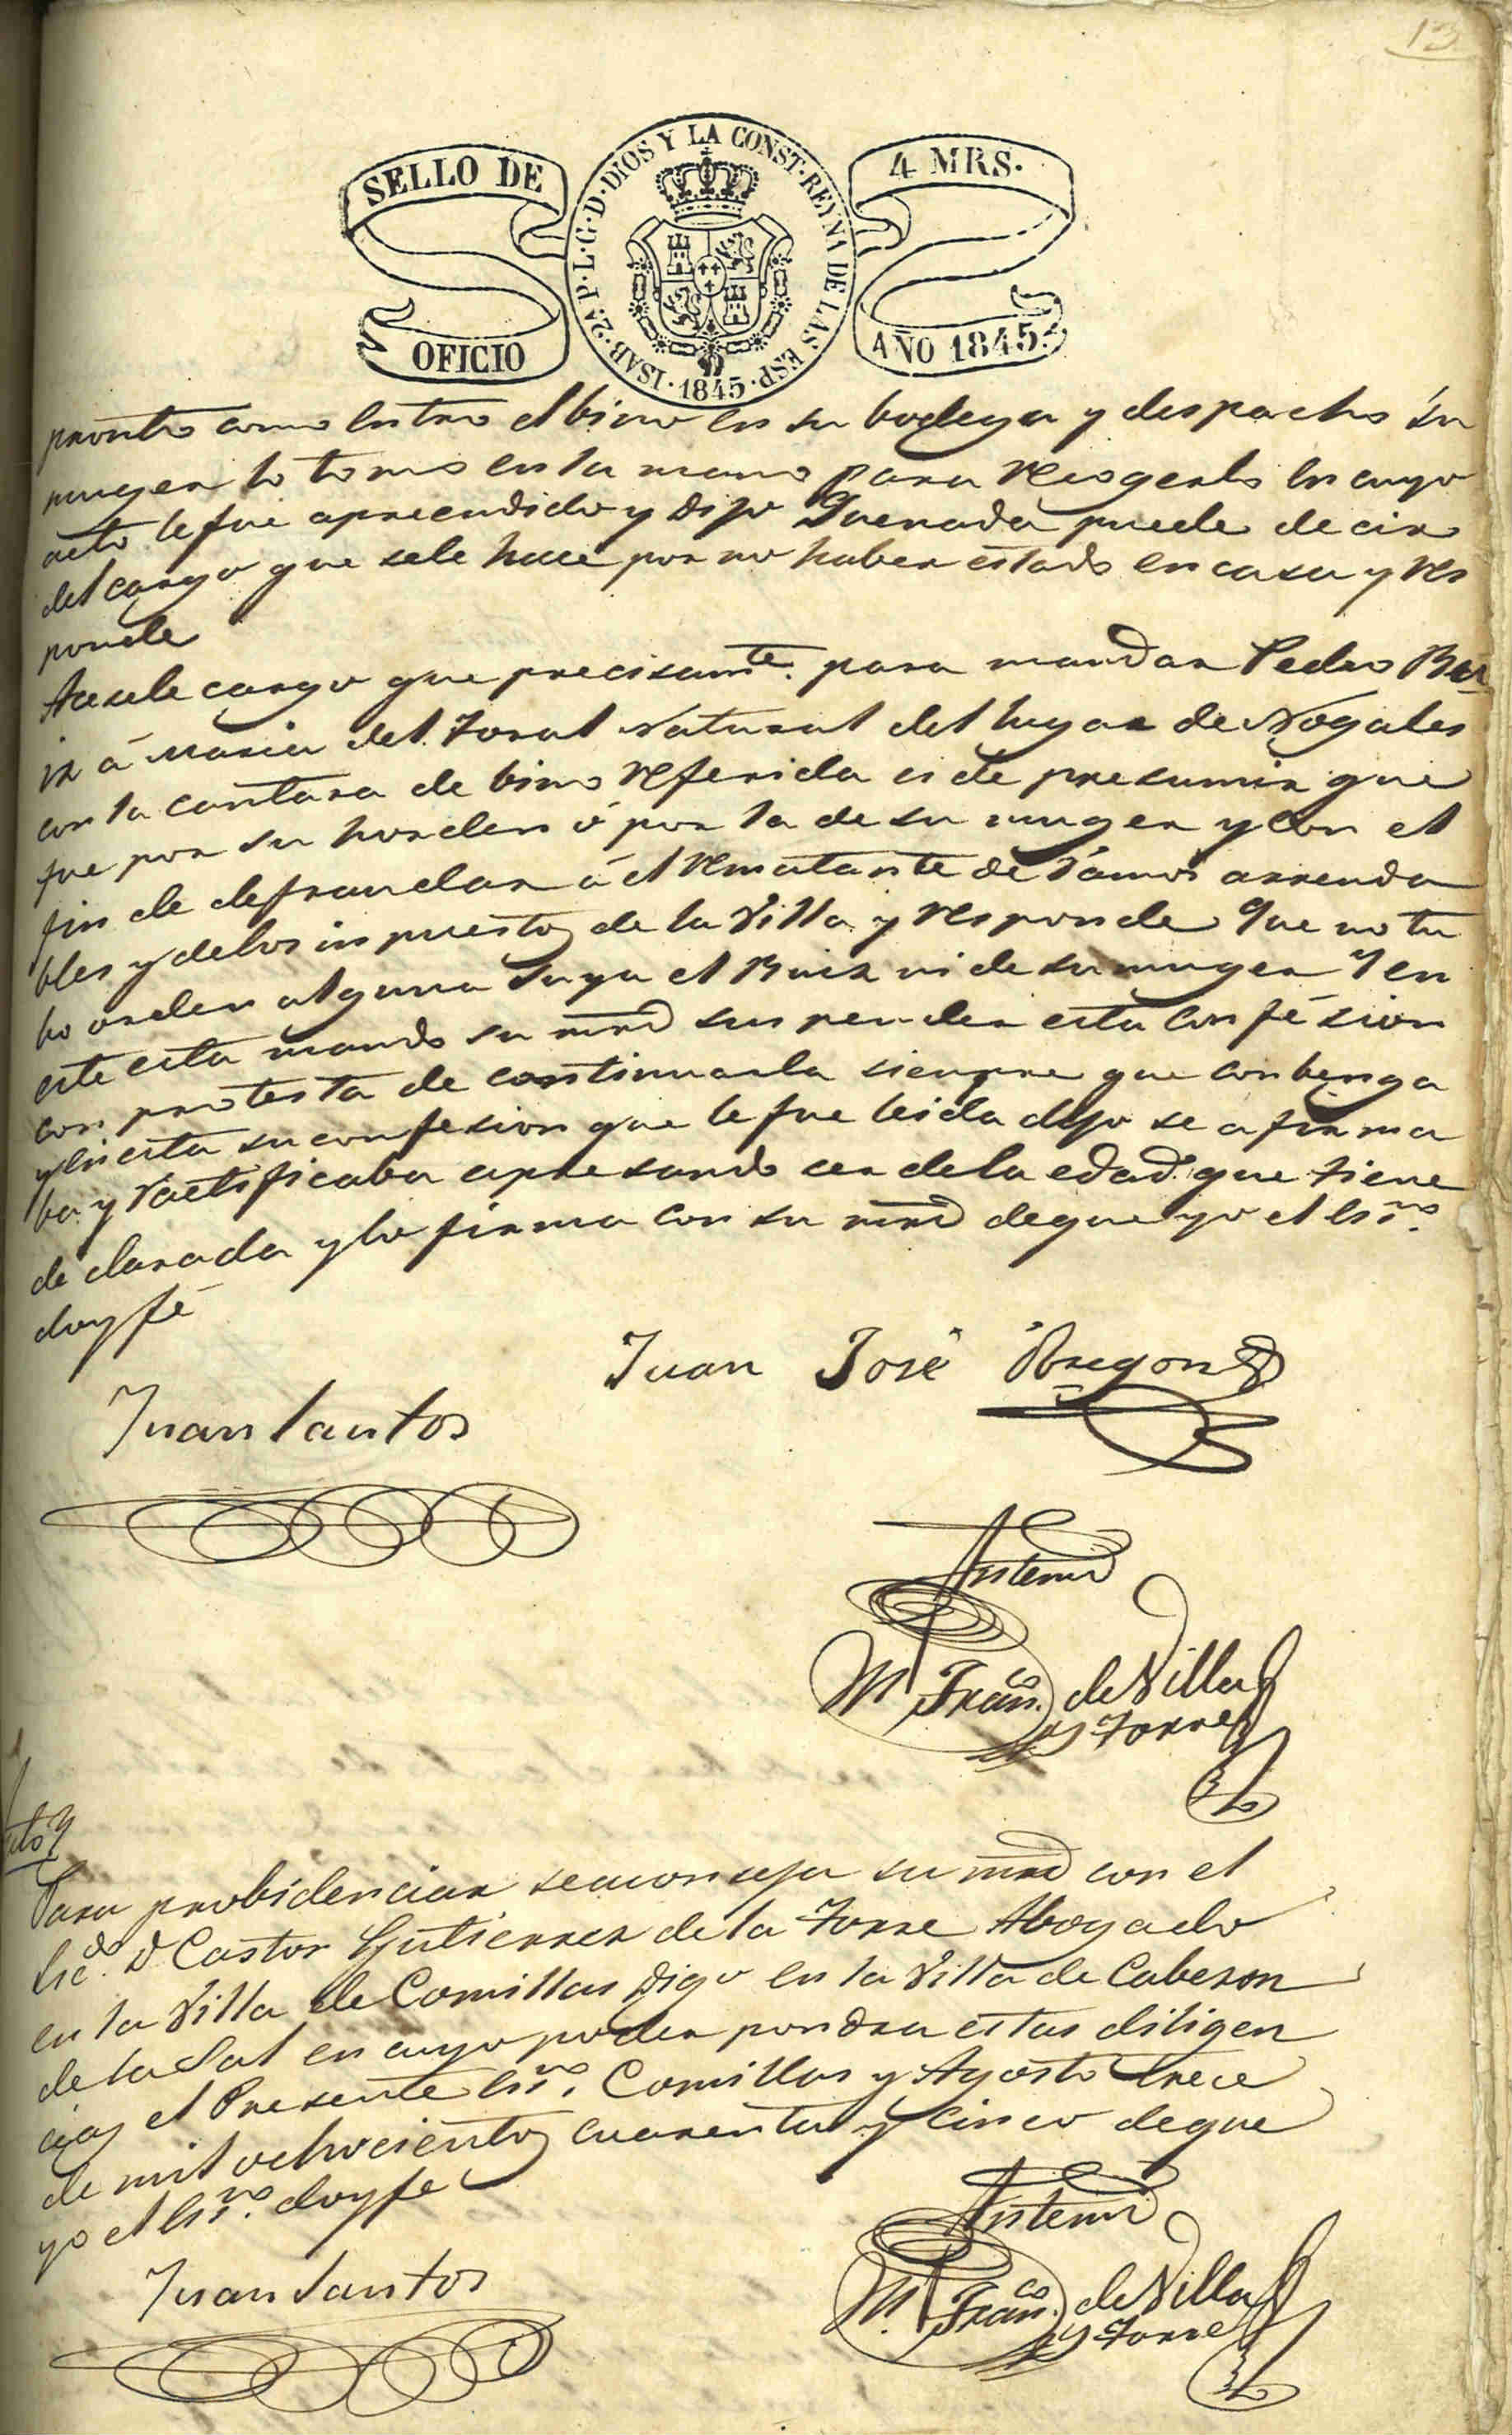 13
SELLO DE
OFICIO
ISAB. 2ª P. L. G. D. DIOS Y LA CONST. REYNA DE LAS ESP. 1845.
4 MRS.
AÑO 1845.
pronto como entro el bino en su bodega y despacho su
muger lo tomo en la mano para recogerlo en cuyo
acto le fue aprendido y dijo Que nada puede decir
del cargo que sele hace por no haber estado en casa y res
ponde
Acesele cargo que precisamte. para mandar Pedro Ru
iz á Maria del Toral Natural del lugar de Nogales
con la cantara de bino referida es de presumir que
fue por su horden ó por la de su muger y con el
fin de defraudar á el rematante de ramos arrenda
bles y delos inpuestos de la Villa y responde Que no tu
bo orden alguna suya el Ruiz ni de su muger Y en
este esta mando su mrd suspender esta confésion
con protesta de continuarla siempre que conbenga
y en esta su confesion que le fue leida dijo se afirma
ba y ractificaba apresando ser dela edad que tiene
de clarada y lo firma con su mrd deque yo el Essno.
doy fé
Juan José Obregon
Juan Santos
Antemi
M. Franco. de Villa
y Torre
uto
Para probidenciar seaconseja su mrd con el
Licdo. D Castor Gutierrez de la Torre Abogado
en la Villa de Comillas digo en la Villa de Cabezon
de la Sal en cuyo poder pondra estas diligen
cias el Presente Essno. Comillas y Agosto trece
de mil ochocientos cuarenta y cinco deque
yo el Essno. doy fe
Antemi
Juan Santos
M. Franco. de Villa
y Torre